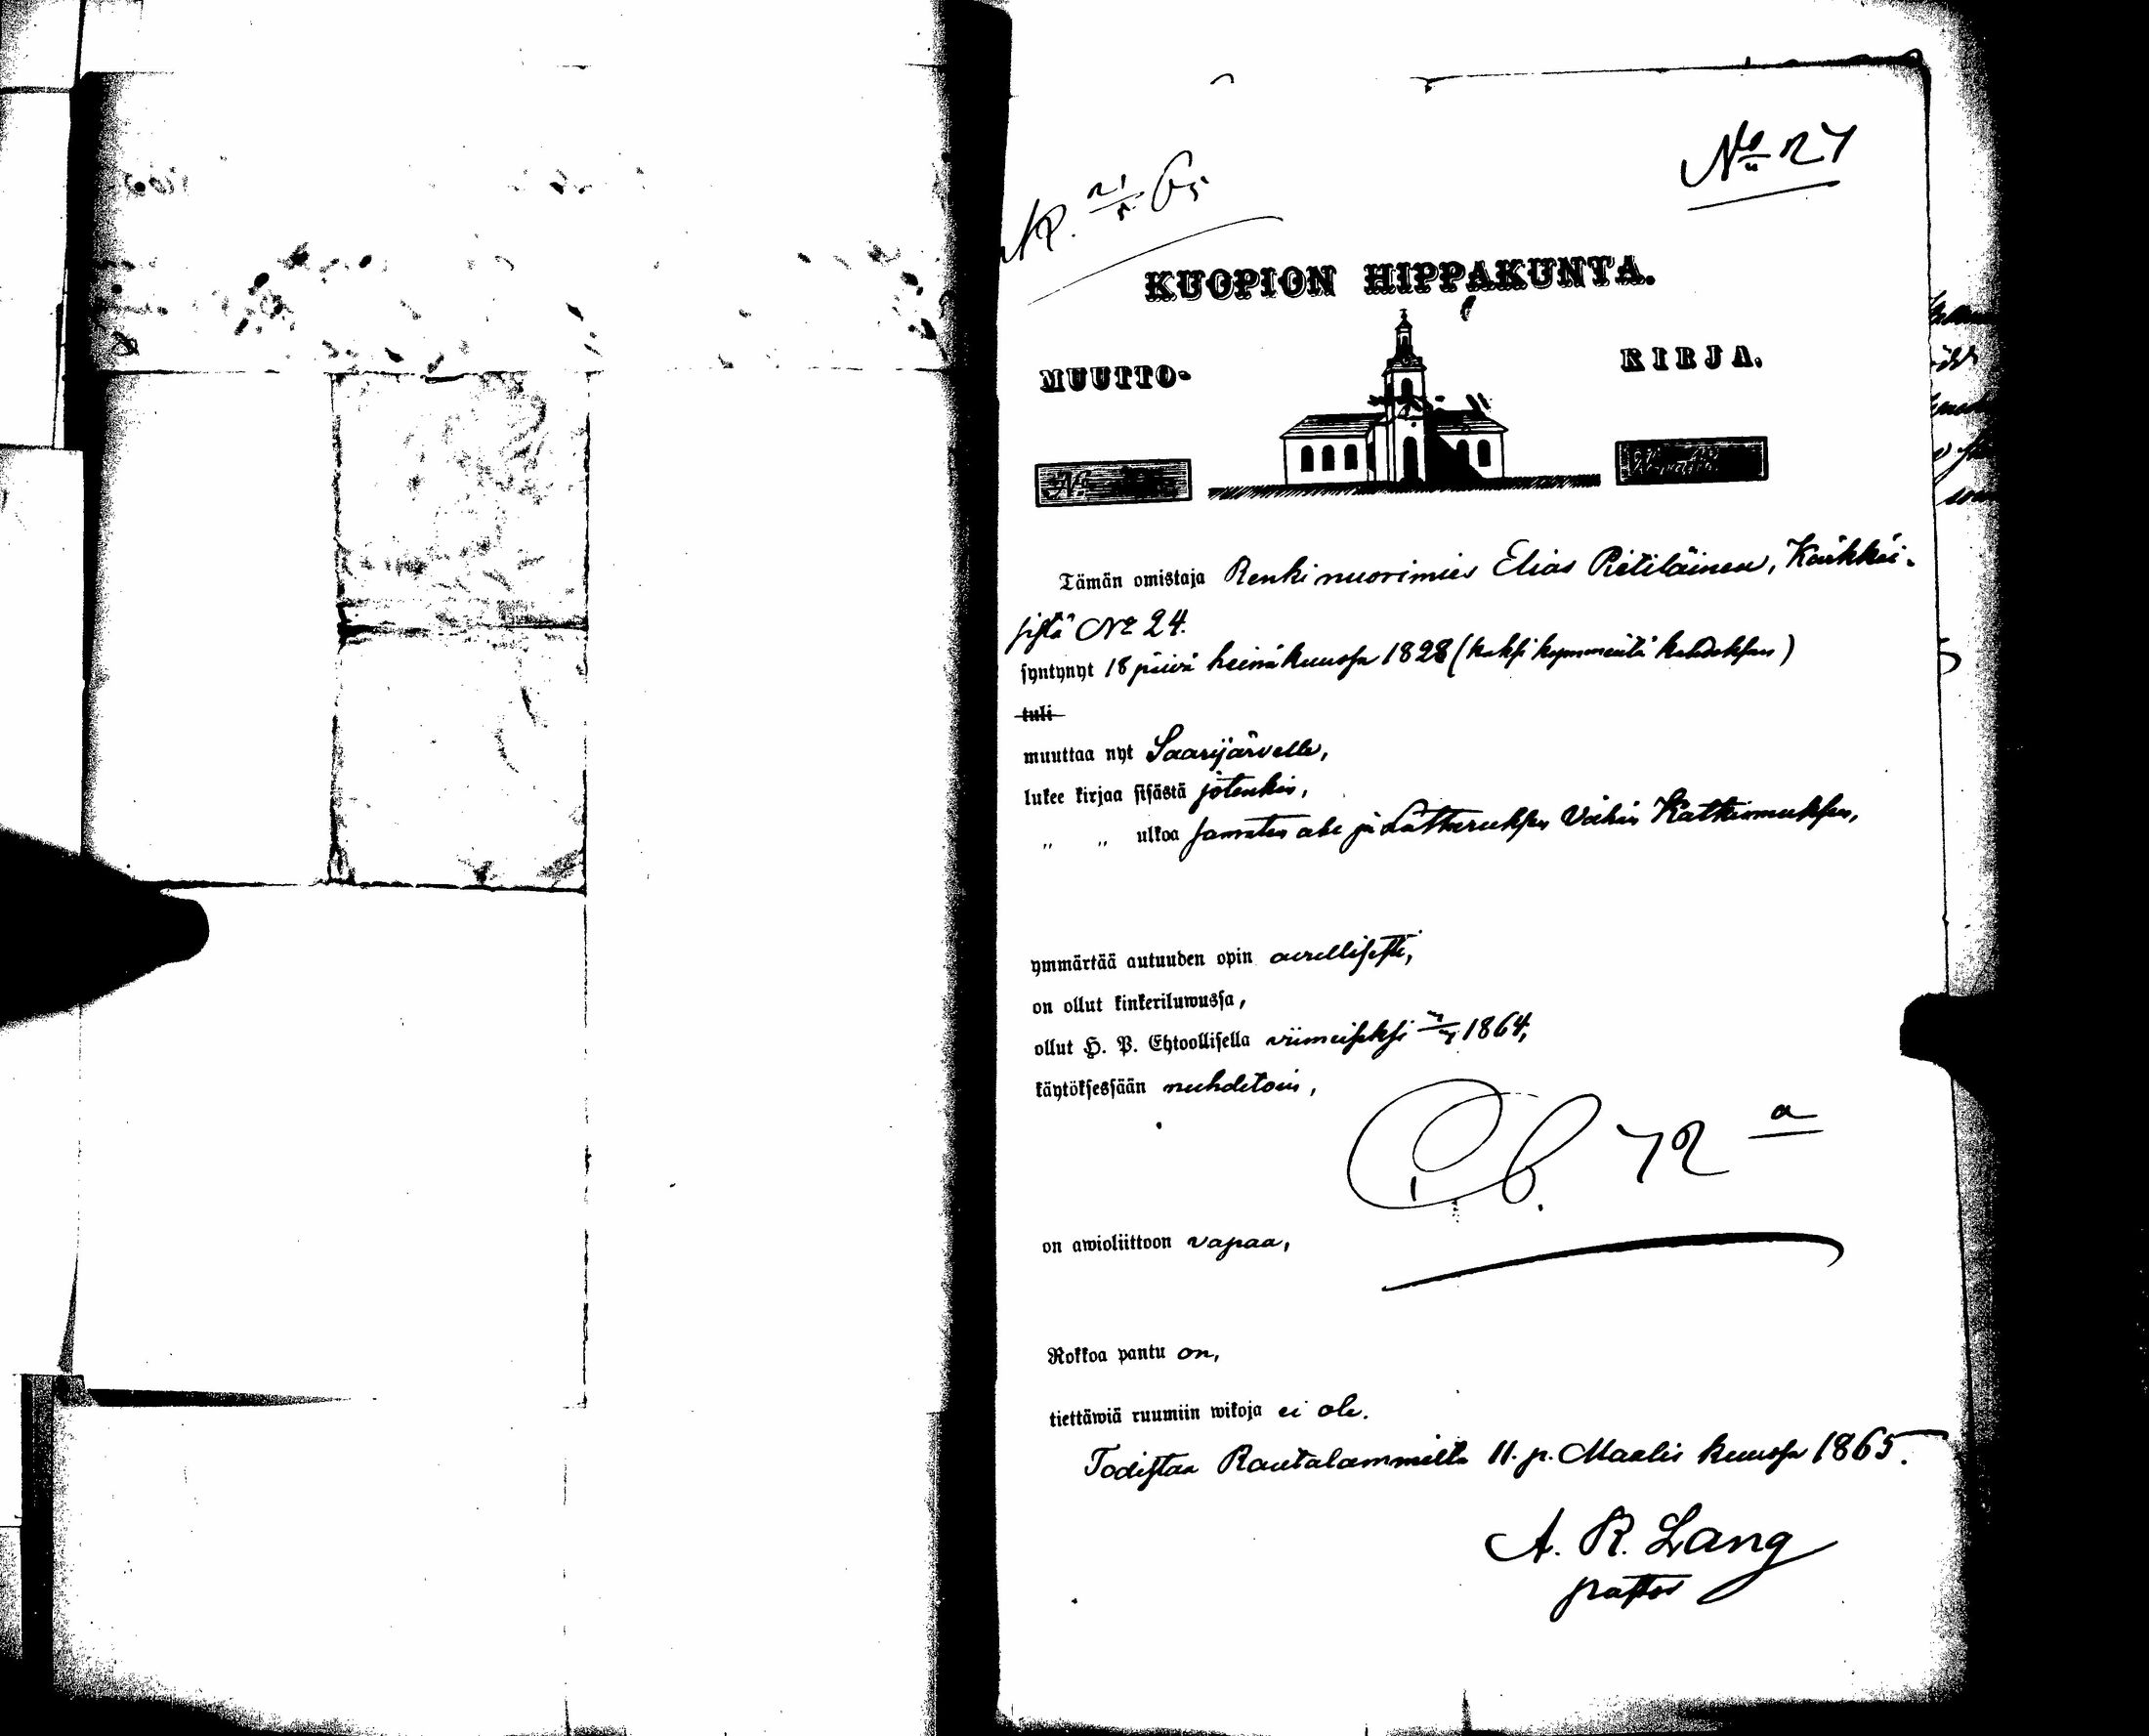 No 27
KUOPION HIPPAKUNTA.
MUUTTO-
KIRJA.
No
Tämän omistaja Renki nuorimies Elias Pietiläinen, Kärkkäi-
sistä No 24.
syntynyt 18 päivä heinäkuussa 1828 (kaksi kymmentä kahdeksan)
tuli
muuttaa nyt Saarijärvelle,
lukee kirjaa sisästä jotenkin,
„ „ ulkoa samaten abc ja Lutheruksen Vähän Katkismuksen,
ymmärtää autuuden opin
on ollut kinkeriluwussa,
ollut H. P. Ehtoollisella viimeiseksi 1864,
käytöksessään nuhdetoin,
72 a
on awioliittoon vapaa,
Rokkoa pantu on,
tiettäwiä ruumiin wikoja ei ole.
Todistaa Rautalammilta 11. p. Maalis kuussa 1865.
A. R. Lang
pastor